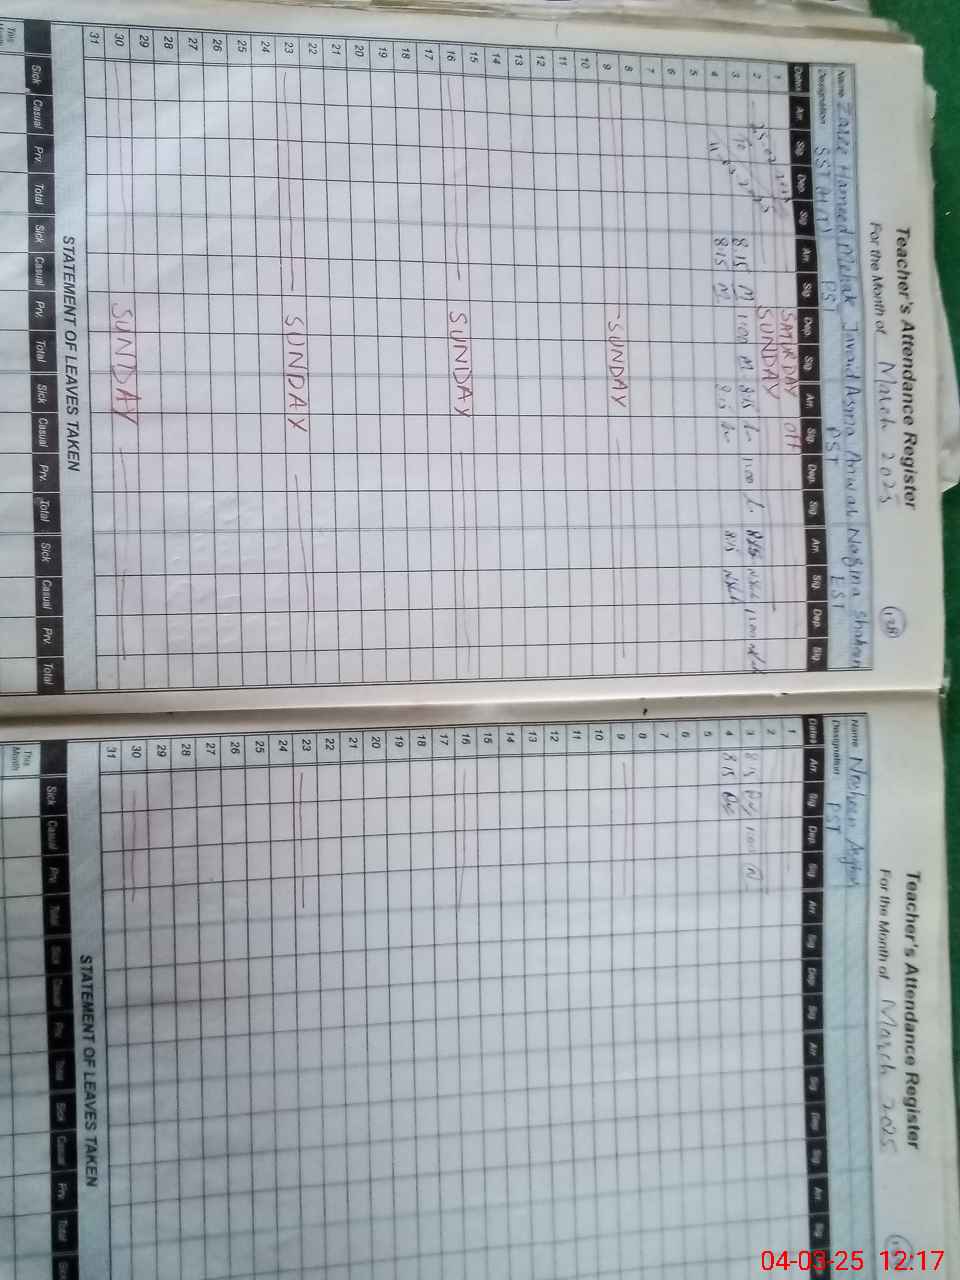 Teacher's Attendance Register
For the Month of March 2025
138
Name Zaree Hameed Mehak Javaid Asma Anwar Nagma Shaheen
Designation SST (HT) PST PST EST
Dates Arr. Sig. Dep. Sig. Arr. Sig. Dep. Sig. Arr. Sig. Dep. Sig. Arr. Sig. Dep. Sig.
1 SATURDAY OFF
2 SUNDAY
3 To 8:15 M 1100 M 8:15 1100 8:15 1100
4 8:15 M 8:15 8:15
5
6
7
8
9 SUNDAY
10
11
12
13
14
15
16 SUNDAY
17
18
19
20
21
22
23 SUNDAY
24
25
26
27
28
29
30 SUNDAY
31
STATEMENT OF LEAVES TAKEN
Sick Casual Prv. Total Sick Casual Prv. Total Sick Casual Prv. Total Sick Casual Prv. Total
This Month
Teacher's Attendance Register
For the Month of March 2025
Name Nosheen Asghar
Designation PST
Dates Arr. Sig. Dep. Sig. Arr. Sig. Dep. Sig. Arr. Sig. Dep. Sig. Arr. Sig.
1
2
3 8:15 1100
4 8:15
5
6
7
8
9
10
11
12
13
14
15
16
17
18
19
20
21
22
23
24
25
26
27
28
29
30
31
STATEMENT OF LEAVES TAKEN
Sick Casual Prv. Total Sick Casual Prv. Total Sick Casual Prv. Total Sick
This Month
04-03-25 12:17